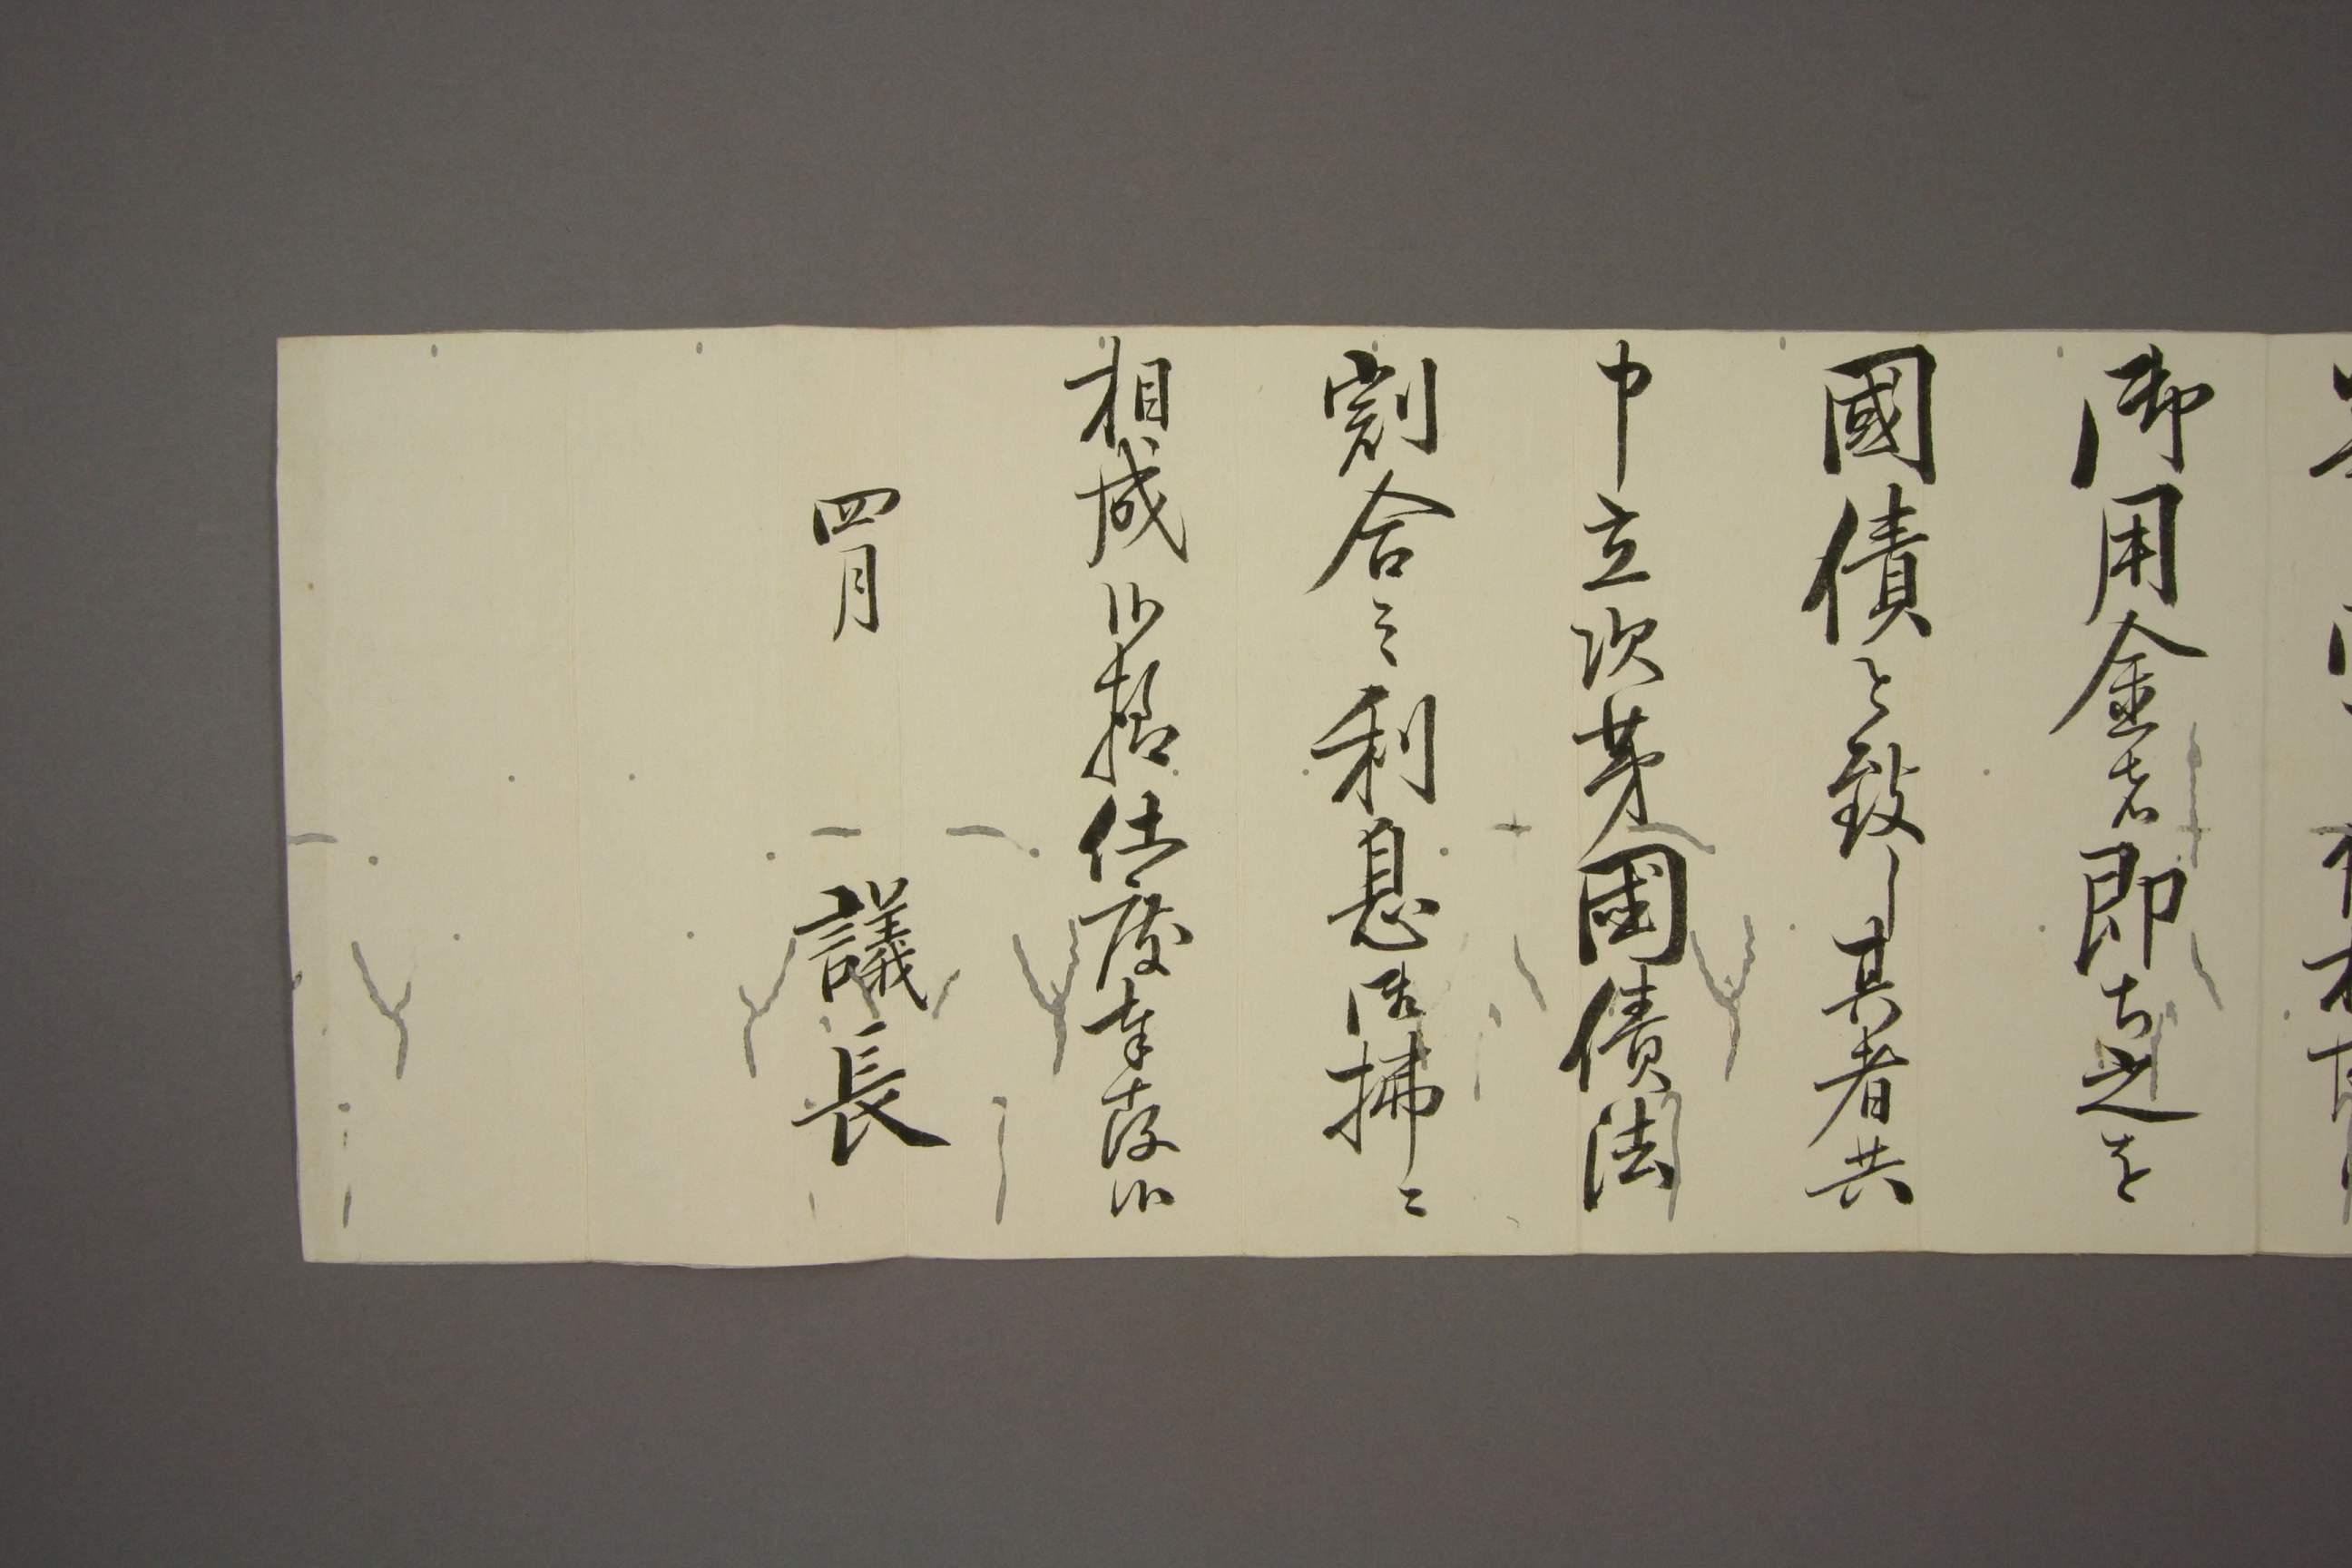 御用金者即ち之を
國債と致し其者共
申立次第國債法
割合之利息御拂ニ
相成候様仕度奉存候
四月
議長